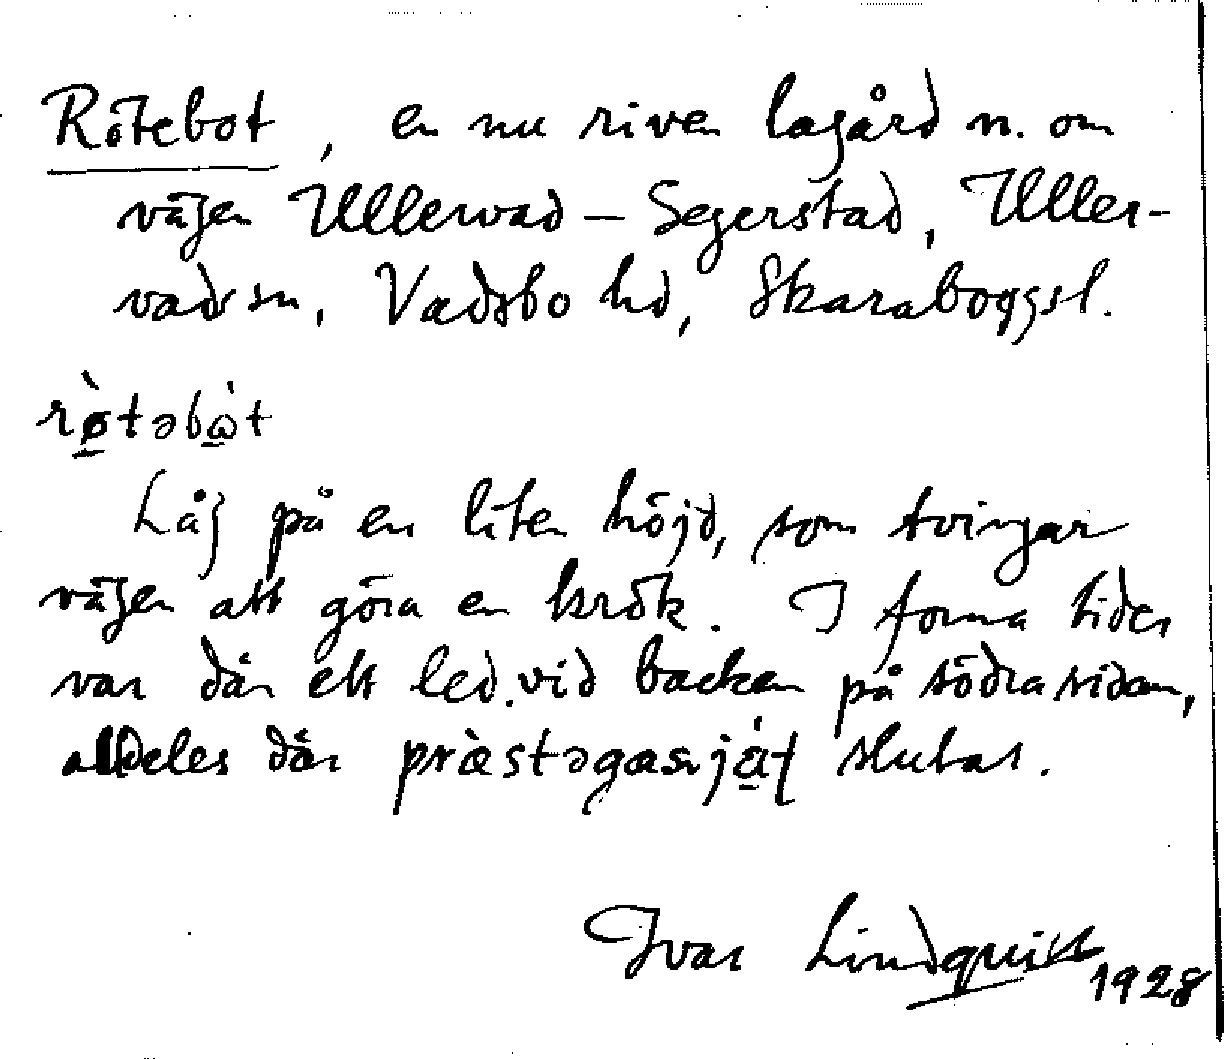 Rötebot, en nu riven lagård n. om
vägen Ullervad – Segerstad, Uller-
vads sn, Vadsbo hd, Skaraborgs l.
rø̀təbὼt
Låg på en liten höjd, som tvingar
vägen att göra en krök. I forna tider
var där ett led vid backen på södra sidan,
alldeles där slutar.
Ivar Lindquist
1928